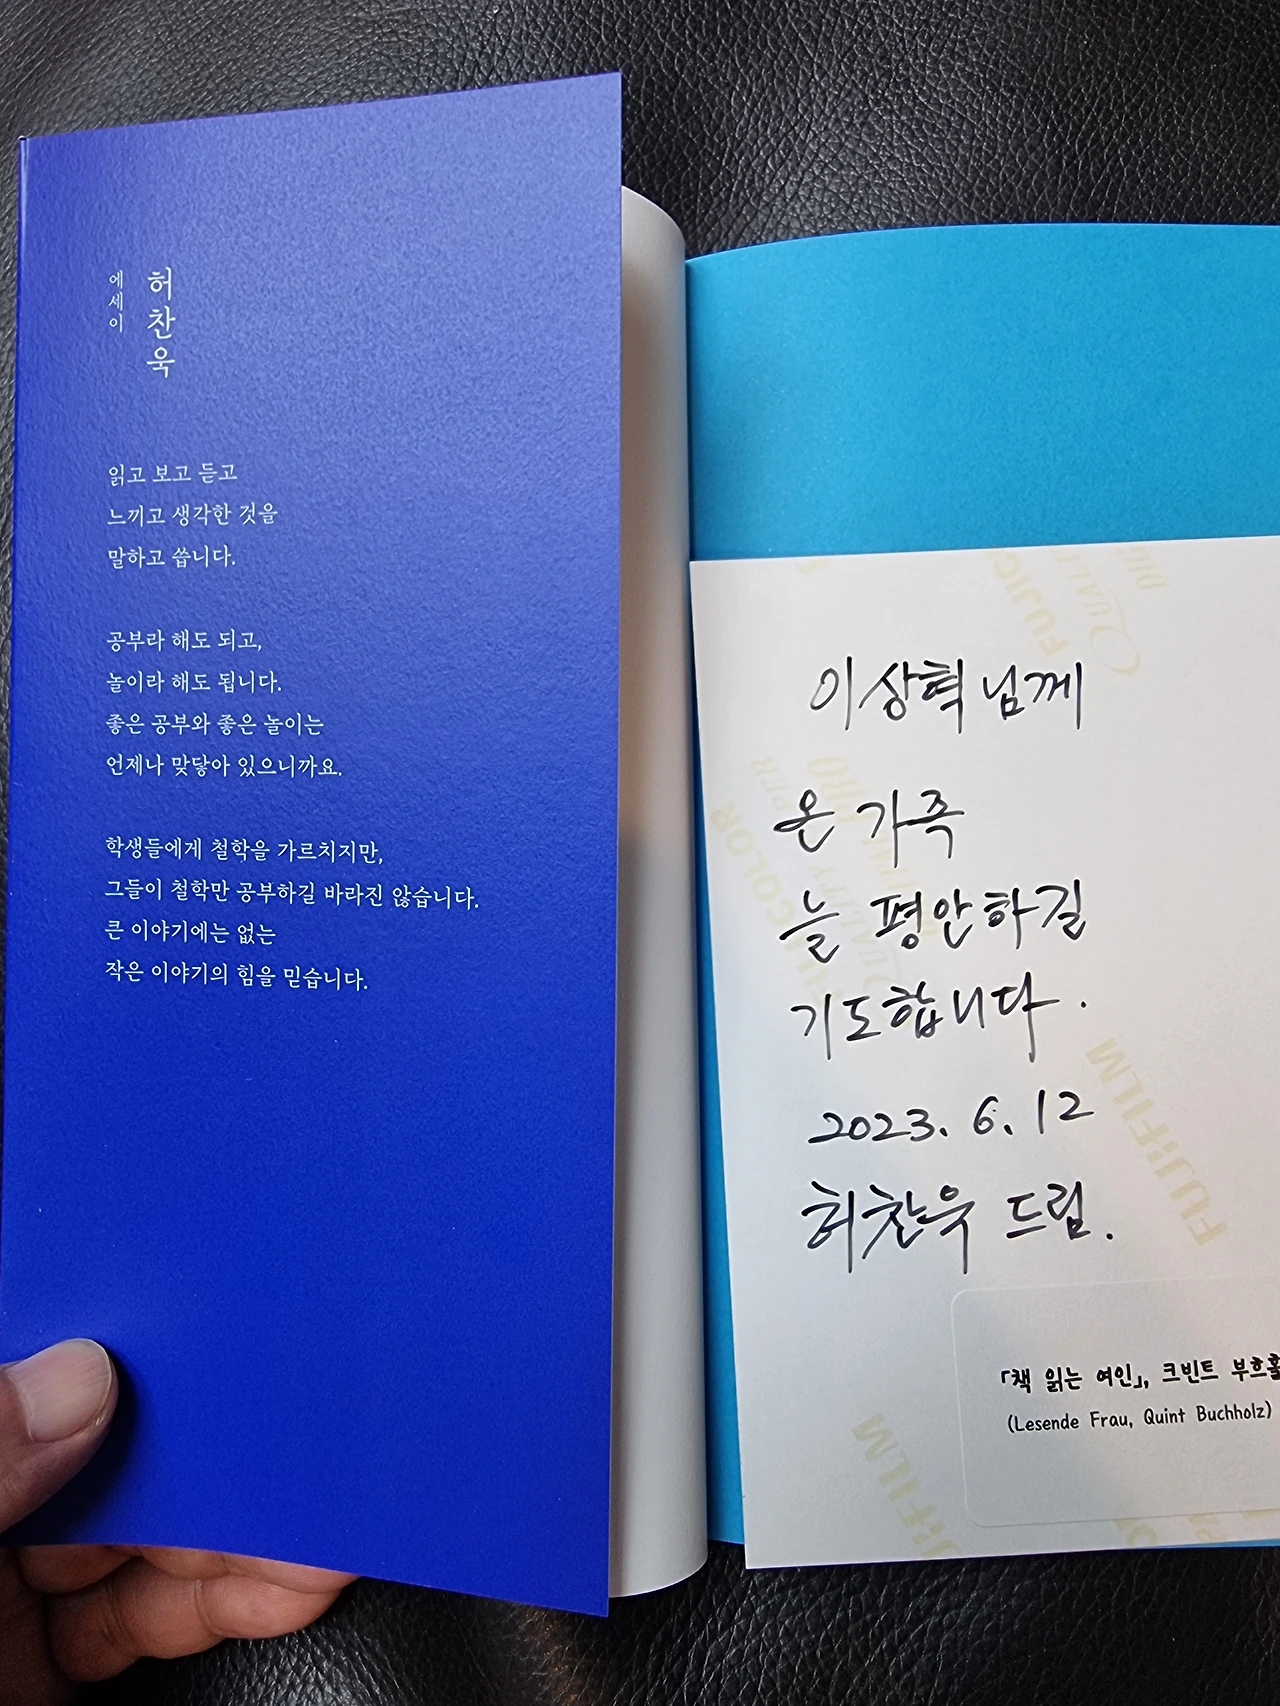 허찬욱
에세이
읽고 보고 듣고
느끼고 생각한 것을
말하고 씁니다.
공부라 해도 되고,
놀이라 해도 됩니다.
좋은 공부와 좋은 놀이는
언제나 맞닿아 있으니까요.
학생들에게 철학을 가르치지만,
그들이 철학만 공부하길 바라진 않습니다.
큰 이야기에는 없는
작은 이야기의 힘을 믿습니다.
이상혁 님께
온 가족
늘 평안하길
기도합니다.
2023. 6. 12
허찬욱 드림.
「책 읽는 여인」, 크빈트 부흐홀
(Lesende Frau, Quint Buchholz)
FUJIFILM
FUJIFILM